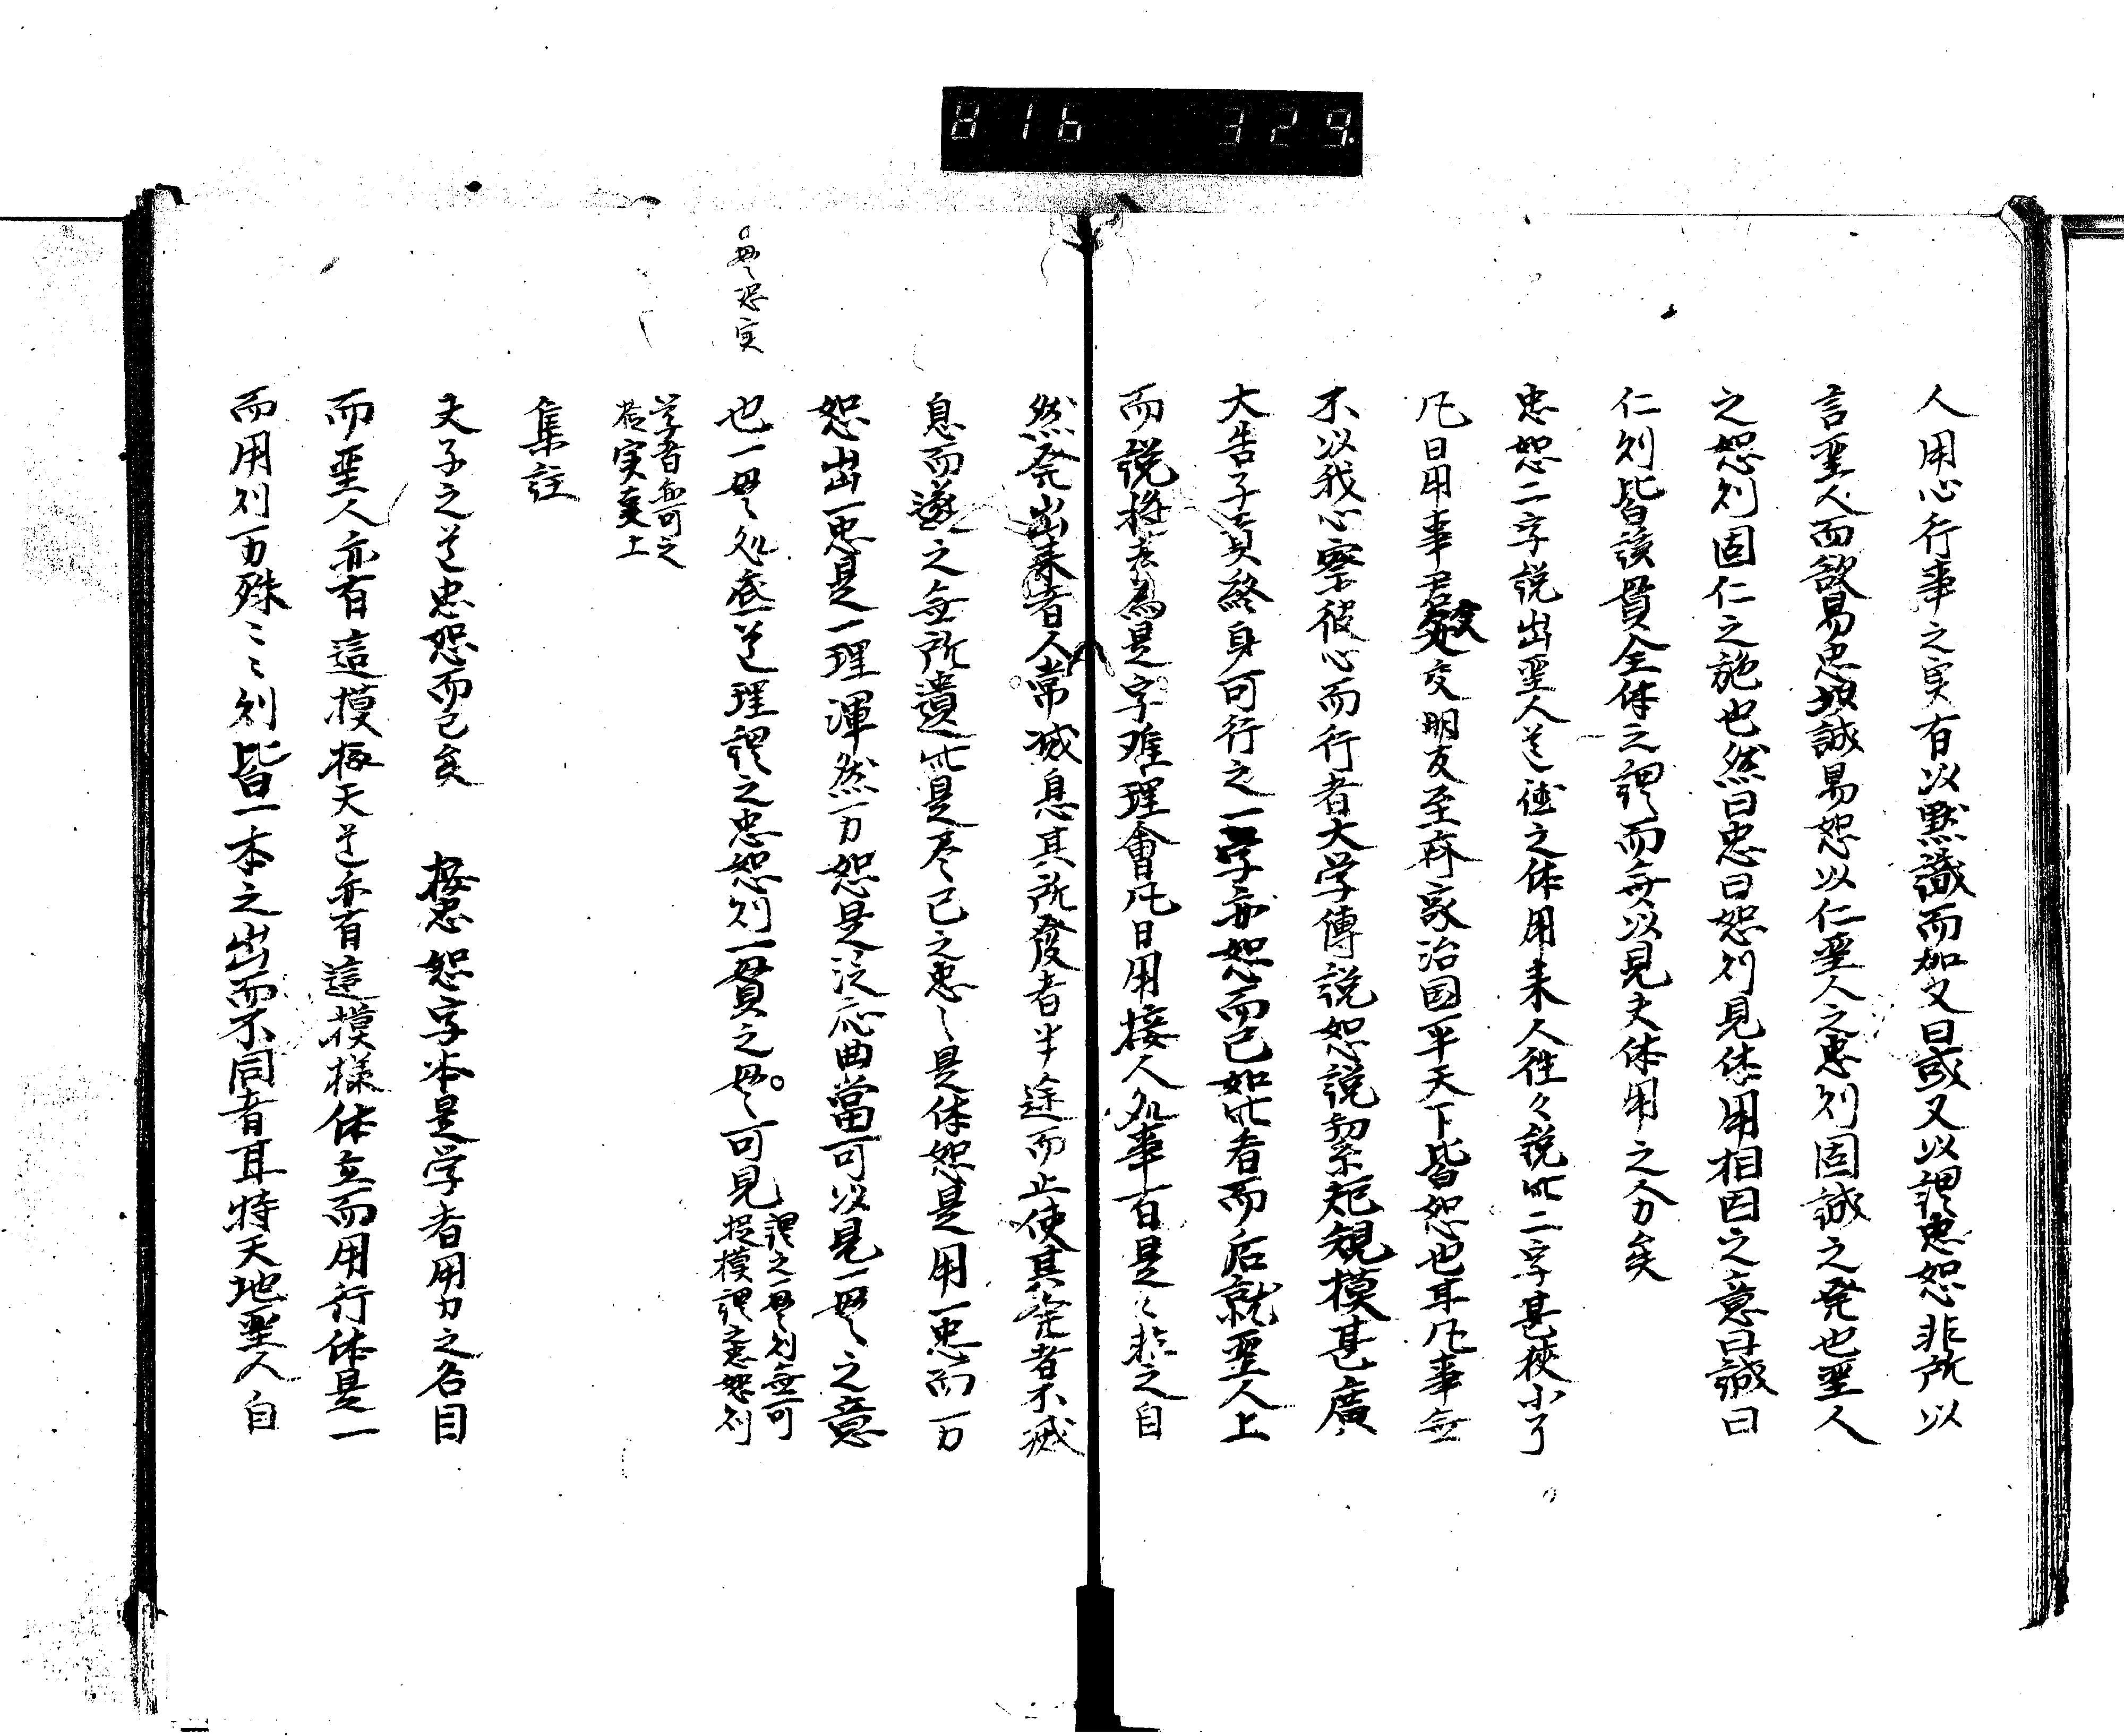 816 329.
人用心行事之実有以黙識而加又曰或又以謂忠恕非所以
言聖人而欲易忠以誠易恕以仁聖人之忠則固誠之発也聖人
之恕則固仁之施也然曰忠曰恕則見体用相因之意曰誠曰
仁則皆該貫全体之謂而無以見夫体用之分矣
忠恕二字説出聖人道徳之体用来人往々説此二字甚狭小了
凡日用事君交明友至斉家治国平天下皆恕也耳凡事無
不以我心察彼心而行者大学傳説恕説絜矩規模甚廣
大告子貢終身可行之一字亦恕而已如此者而后就聖人上
而説將去為是字难理會凡日用接人処事百是々非之自
然発出来者人常滅息其所發者半途而止使其発者不滅
息而遂之無所遺此是尽己之忠〻是体恕是用一忠而万
恕出一忠是一理渾然万恕是泛応曲當可以見一貫之意
也一貫処底道理謂之忠恕則一貫之貫可見謂之一貫則無可
捉模謂之忠恕則
学者無可之
於実裏上
貫恕実
集註
夫子之道忠恕而已矣 按忠恕字本是学者用力之名目
而聖人亦有這模極天道亦有這模様体立而用行体是一
而用則万殊〻〻則皆一本之出而不同者耳特天地聖人自